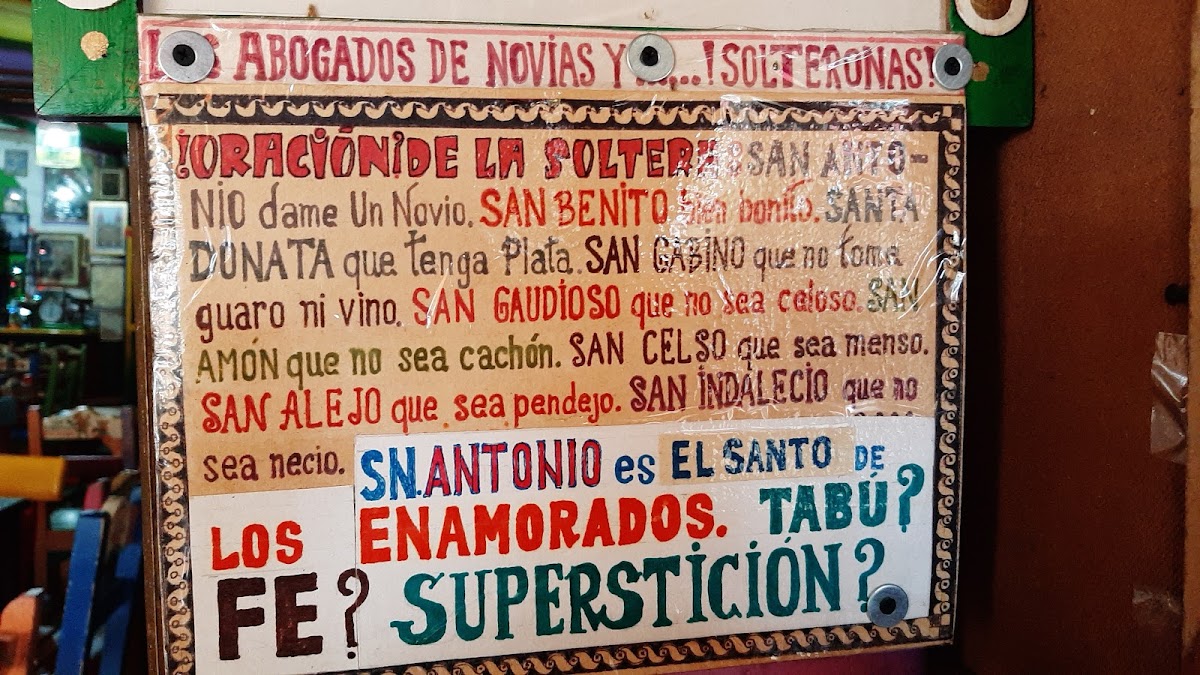 LOS ABOGADOS DE NOVIAS Y ...!SOLTERONAS!
¡ORACIÓN! DE LA SOLTERA: SAN ANTO-
NIO dame Un Novio. SAN BENITO bien bonito. SANTA
DONATA que tenga Plata. SAN GABINO que no tome
guaro ni vino. SAN GAUDIOSO que no sea celoso. SAN
AMÓN que no sea cachón. SAN CELSO que sea menso.
SAN ALEJO que sea pendejo. SAN INDALECIO que no
sea necio. SN.ANTONIO es EL SANTO DE
LOS ENAMORADOS. TABÚ?
FE? SUPERSTICIÓN?